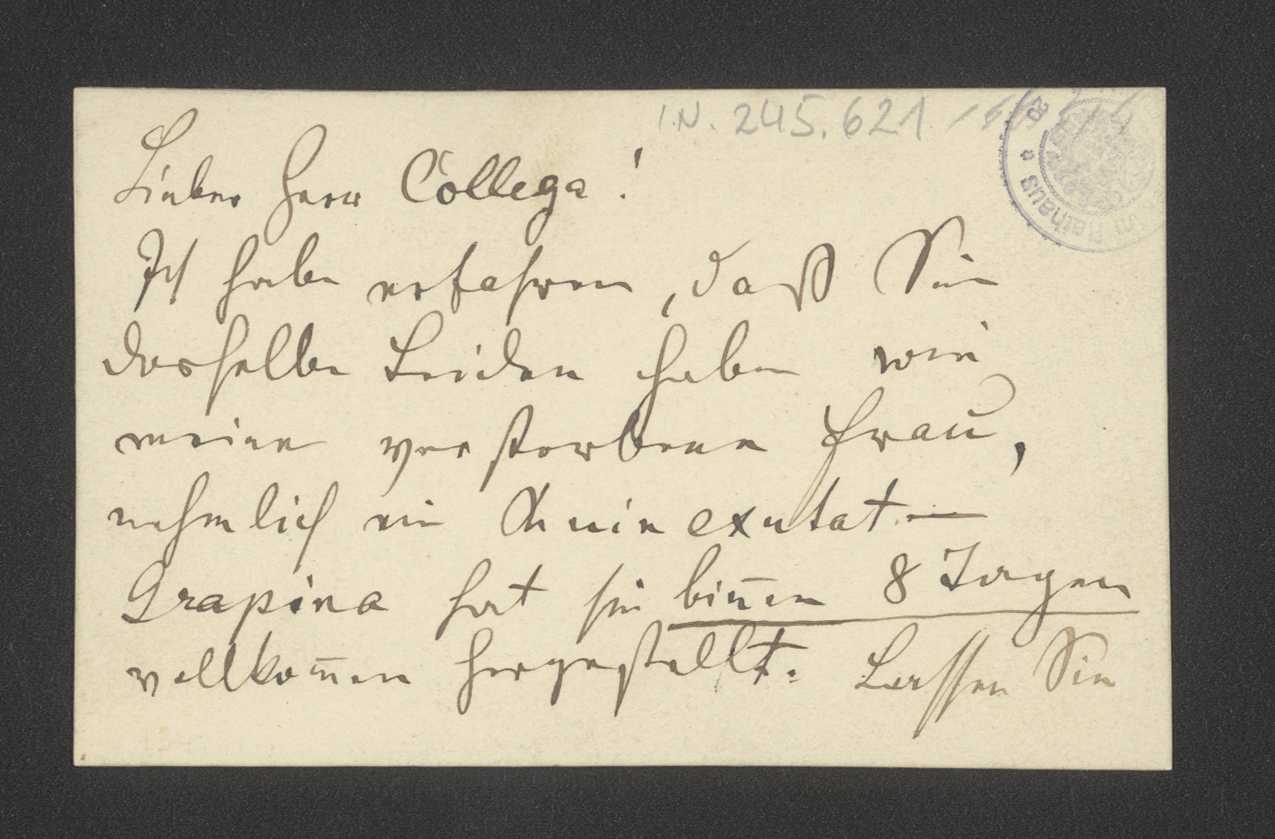 I.N. 245.621
Rathaus
Lieber Herr Collega!
Ich habe erfahren, daß Sie
dasselbe Leiden haben wie
meine verstorbene Frau,
nehmlich ein Knieexutat. —
Grapina hat sie binn̄en 8 Tagen
vollkom̄en hergestellt. Lassen Sie